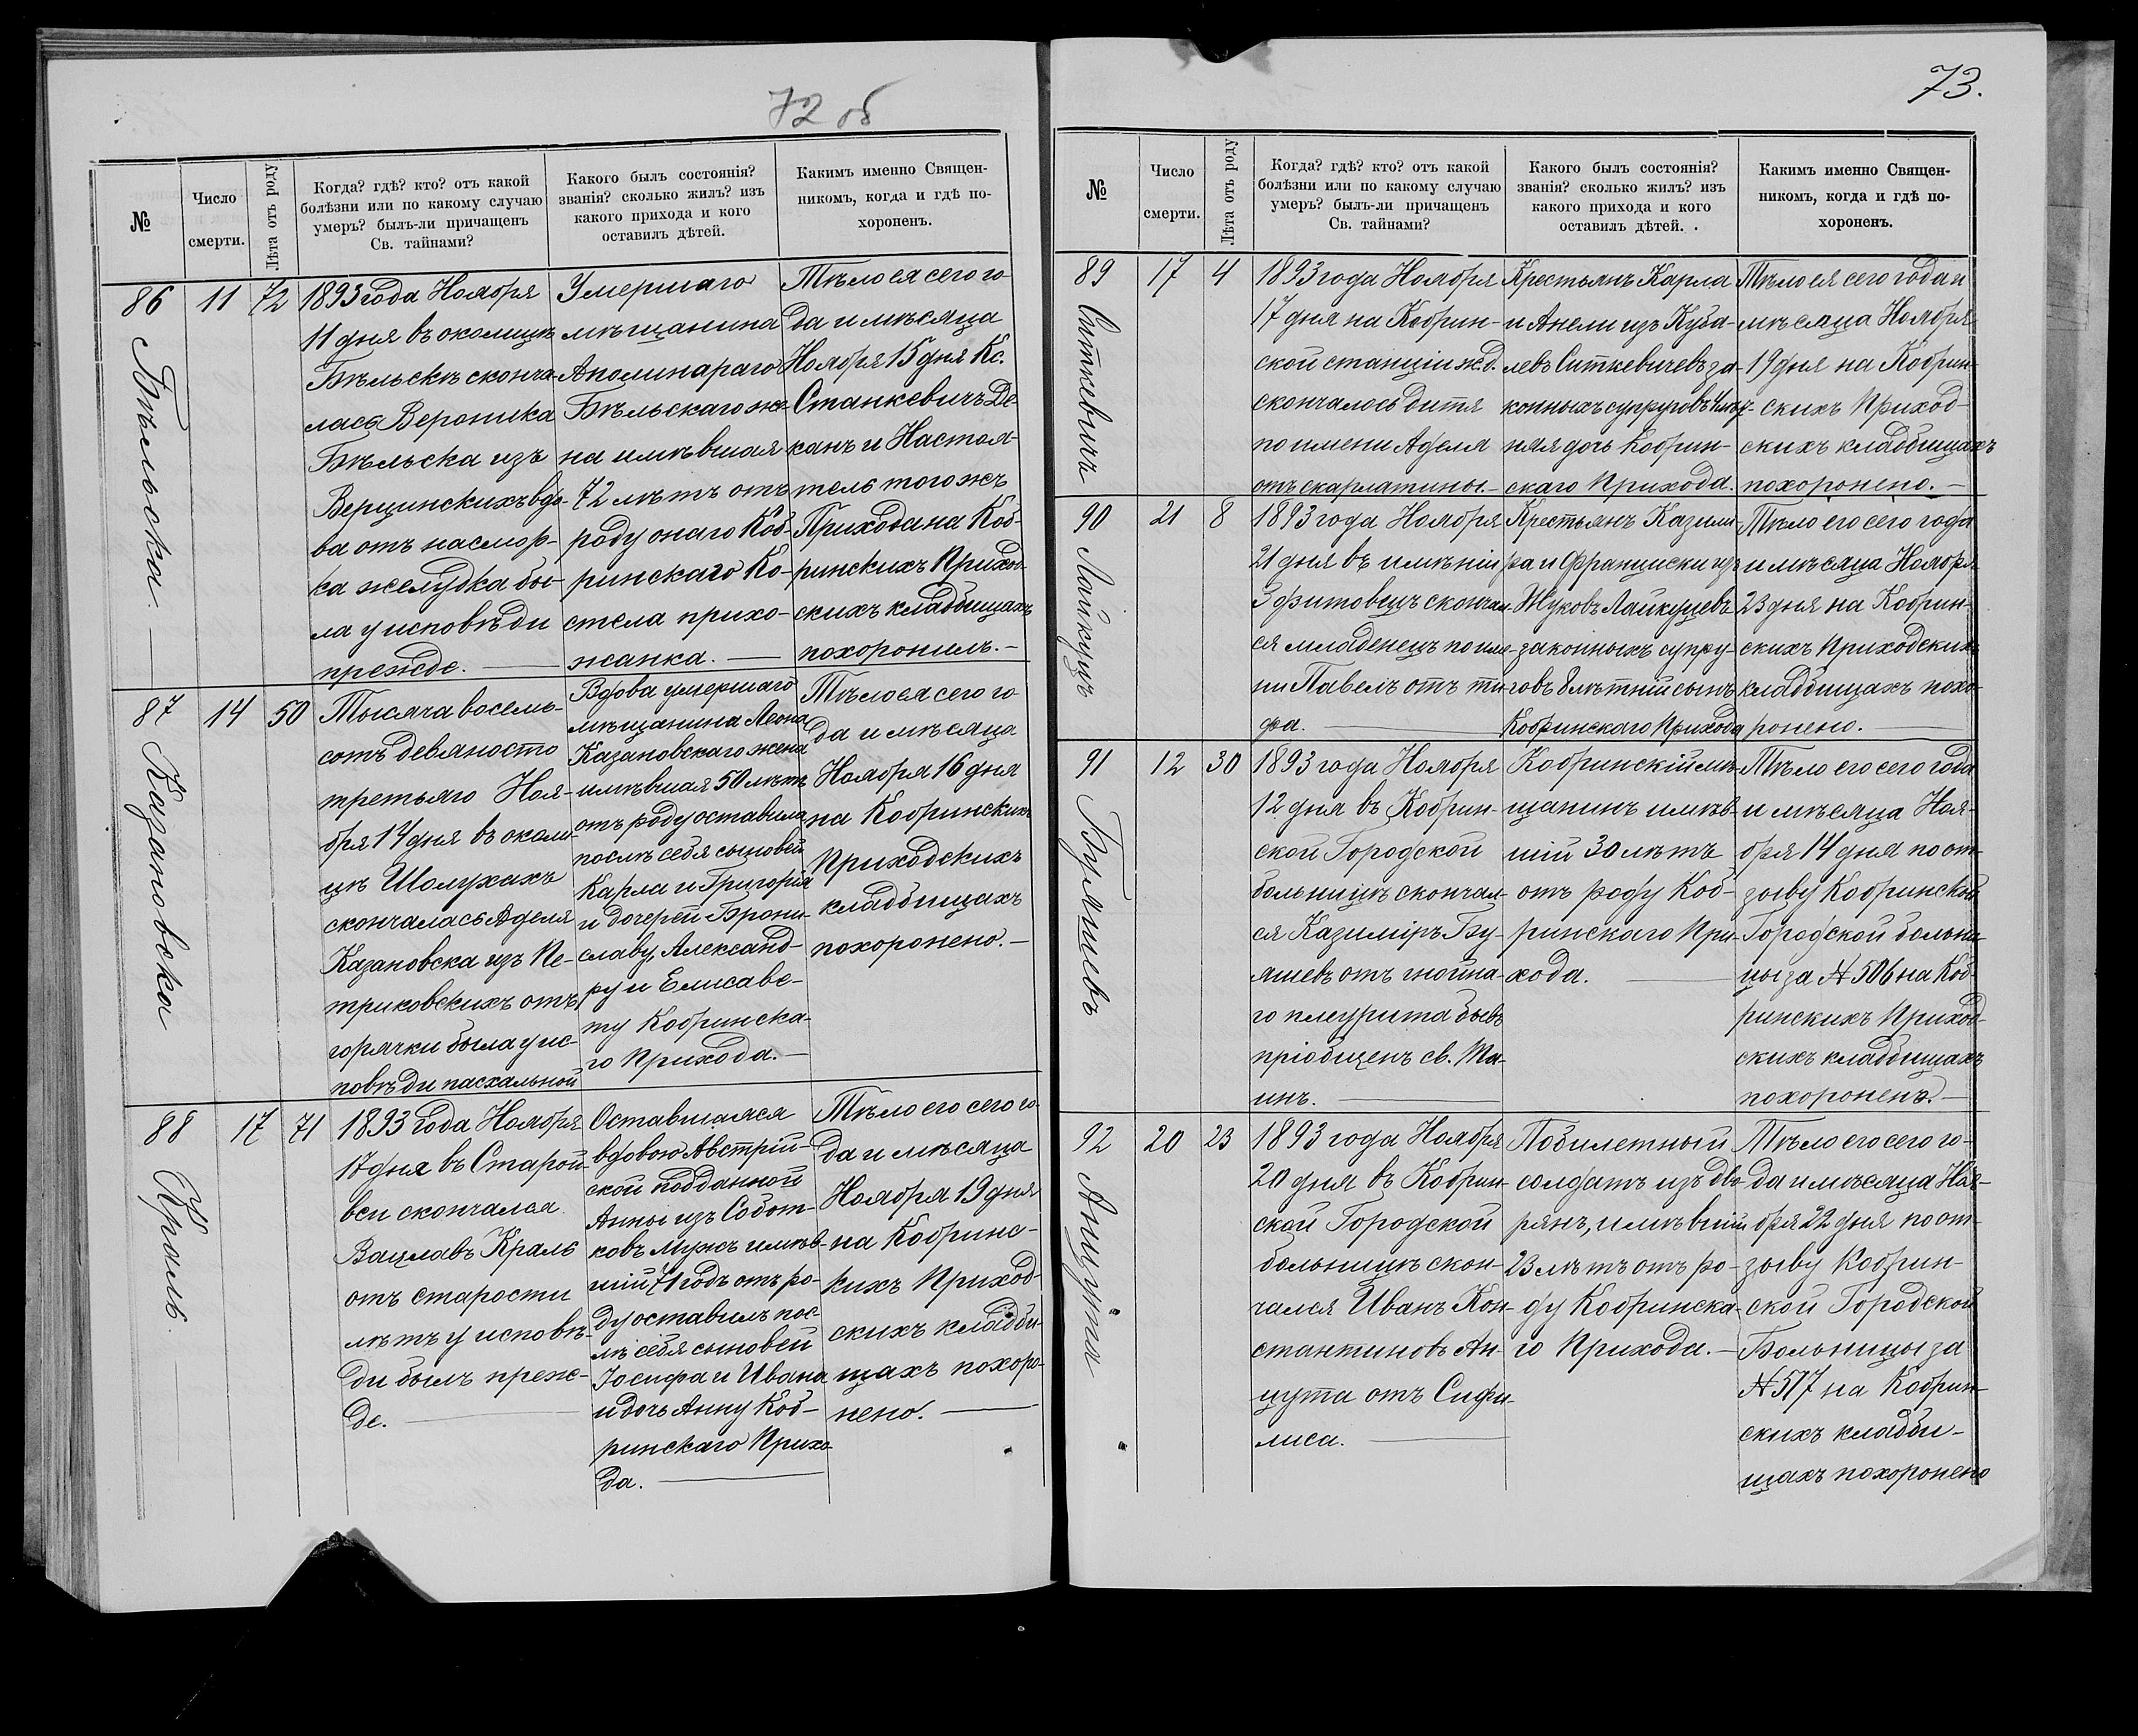 72 об
№
Число
смерти.
Лѣта отъ роду
Когда? гдѣ? кто? отъ какой
болѣзни или по какому случаю
умеръ? былъ-ли причащенъ
Св. тайнами?
Какого былъ состоянія?
званія? сколько жилъ? изъ
какого прихода и кого
оставилъ дѣтей.
Какимъ именно Священ-
никомъ, когда и гдѣ по-
хороненъ.
86
Бѣльска.
11
72
1893 года Ноября
11 дня въ околицѣ
Бѣльскѣ сконча-
лась Вероника
Бѣльска изъ
Верцинскихъ вдо-
ва отъ насмор-
ка желудка бы-
ла у исповѣди
прежде.
Умершаго
мѣщанина
Аполинараго
Бѣльскаго же-
на имѣвшая
72 лѣтъ отъ
роду онаго Коб-
ринскаго Ко-
стела прихо-
жанка.
Тѣло ея сего го-
да и мѣсяца
Ноября 15 дня Кс.
Станкевичъ Де-
канъ и Настоя-
тель того жъ
Прихода на Коб-
ринскихъ Приход-
скихъ кладбищахъ
похоронилъ.-
87
Казановска
14
50
Тысяча восемь-
сотъ девяносто
третьяго Ноя-
бря 14 дня въ околи-
цѣ Шолухахъ
скончалась Аделя
Казановска изъ Пе-
триковскихъ отъ
горячки была у ис-
повѣди пасхальной
Вдова умершаго
мѣщанина Леона
Казановскаго жена
имѣвшая 50 лѣтъ
отъ роду оставила
послѣ себя сыновей
Карла и Григорія
и дочерей Брони-
славу, Александ-
ру и Елисаве-
ту Кобринска-
го Прихода.-
Тѣло ея сего го-
да и мѣсяца
Ноября 16 дня
на Кобринскихъ
Приходскихъ
кладбищахъ
похоронено.-
88
Краль.
17
71
1893 года Ноября
17 дня въ Старой-
вси скончался
Вацлавъ Краль
отъ старости
лѣтъ у исповѣ-
ди былъ преж-
де.
Оставшаяся
вдовою Австрій-
ской подданной
Анны изъ Собот-
ковъ мужъ имѣв-
шій 71 годъ отъ ро-
ду оставилъ пос-
лѣ себя сыновей
Іосифа и Ивана
и дочь Анну Коб-
ринскаго Прихо-
да.
Тѣло его сего го-
да и мѣсяца
Ноября 19 дня
на Кобринс-
кихъ Приход-
скихъ кладби-
щахъ похоро-
нено.
73.
№
Число
смерти.
Лѣта отъ роду
Когда? гдѣ? кто? отъ какой
болѣзни или по какому случаю
умеръ? былъ-ли причащенъ
Св. тайнами?
Какого былъ состоянія?
званія? сколько жилъ? изъ
какого прихода и кого
оставилъ дѣтей.
Какимъ именно Священ-
никомъ, когда и гдѣ по-
хороненъ.
89
Ситкевичъ
17
4
1893 года Ноября
17 дня на Кобрин-
ской станціи ж.д.
скончалось дитя
по имени Аделя
отъ скарлатины.-
Крестьянъ Карла
и Анели изъ Куба-
левъ Ситкевичевъ за-
конныхъ супруговъ 4 лѣт-
няя дочь Кобрин-
скаго Прихода.
Тѣло ея сего года и
мѣсяца Ноября
19 дня на Кобрин-
скихъ Приход-
скихъ кладбищахъ
похоронено.-
90
Лайкуцъ
21
8
1893 года Ноября
21 дня въ имѣніи
Здитовецъ скончал-
ся младенецъ по име-
ни Павелъ отъ ти-
фа.
Крестьянъ Казими-
ра и Франциски изъ
Жуковъ Лайкуцевъ
законныхъ супру-
говъ 8 лѣтній сынъ
Кобринскаго Прихода
Тѣло его сего года
и мѣсяца Ноября
23 дня на Кобрин-
скихъ Приходскихъ
кладбищахъ похо-
ронено.
91
Буяшевъ
12
30
1893 года Ноября
12 дня въ Кобрин-
ской Городской
больницѣ скончал-
ся Казиміръ Бу-
яшевъ отъ гнойна-
го плеурита бывъ
пріобщенъ св. Та-
инъ.
Кобринскій мѣ-
щанинъ имѣв-
шій 30 лѣтъ
отъ роду Коб-
ринскаго При-
хода.
Тѣло его сего года
и мѣсяца Ноя-
бря 14 дня по от-
зыву Кобринской
Городской больни-
цы за № 506 на Коб-
ринскихъ Приход-
скихъ кладбищахъ
похороненъ.-
92
Анцута
20
23
1893 года Ноября
20 дня въ Кобрин-
ской Городской
больницѣ скон-
чался Иванъ Кон-
стантиновъ Ан-
цута отъ Сифи-
лиса.
Побилетный
солдатъ изъ дво-
рянъ, имѣвшій
23 лѣтъ отъ ро-
ду Кобринска-
го Прихода.-
Тѣло его сего го-
да и мѣсяца Ноя-
бря 22 дня по от-
зыву Кобрин-
ской Городской
Больницы за
№ 517 на Кобрин-
скихъ кладби-
щахъ похоронено